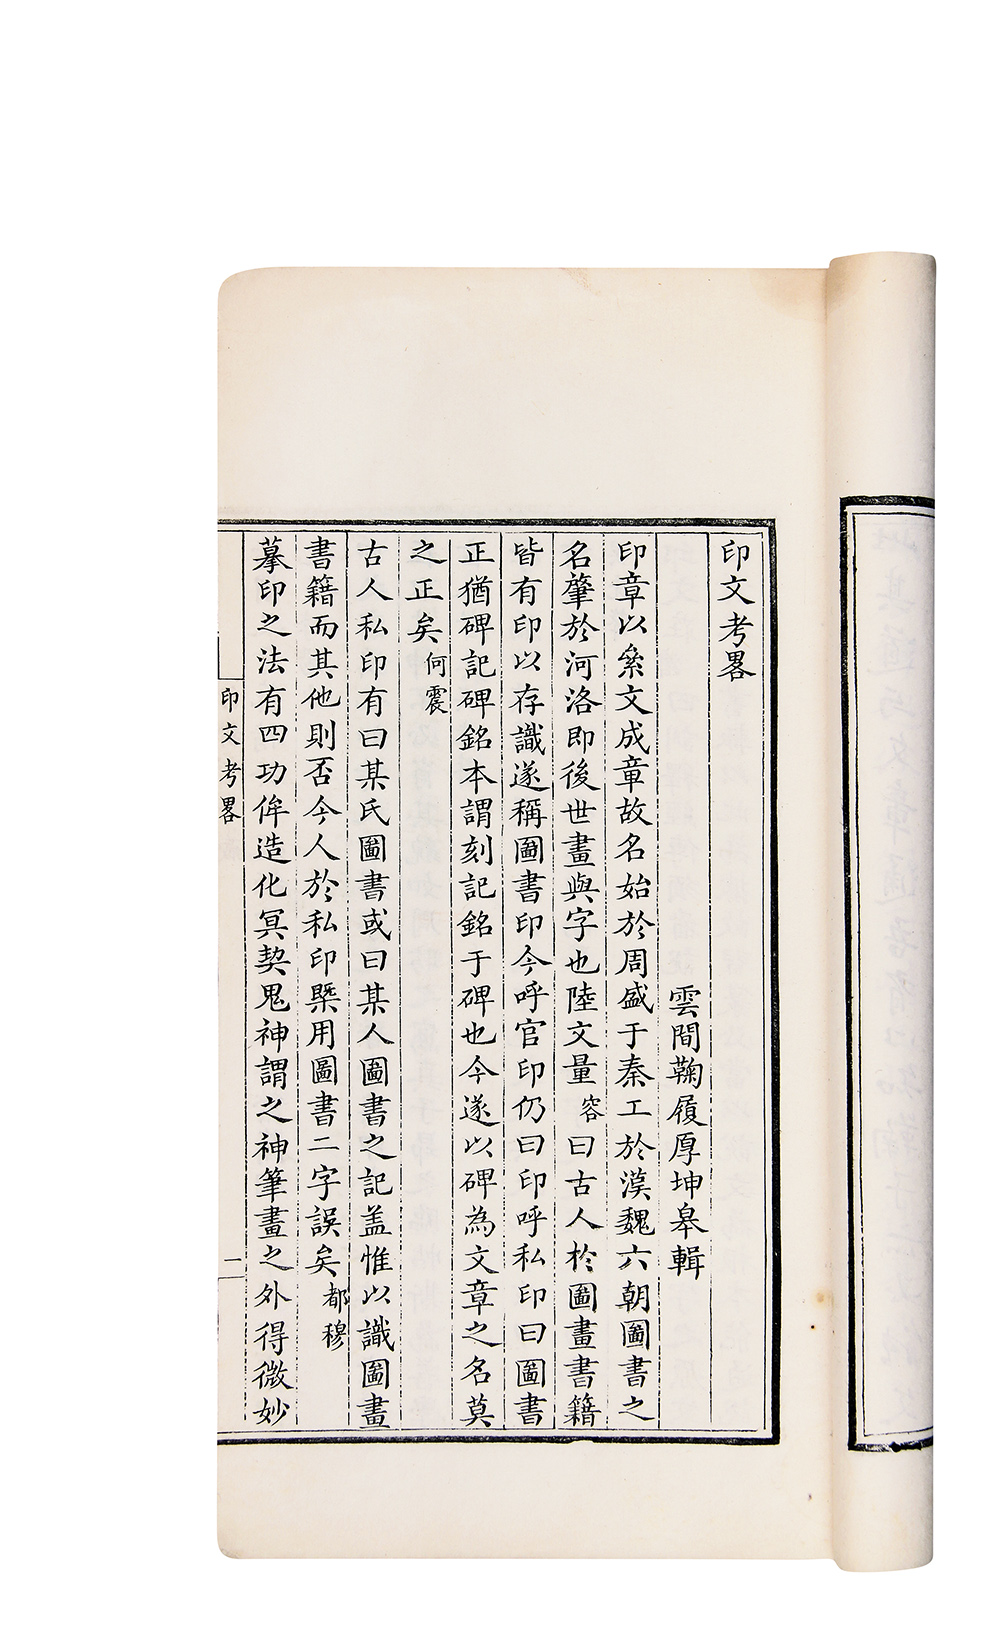 印文考畧
雲間鞠履厚坤皋輯
印章以彖文成章故名始於周盛于秦工於漢魏六朝圖書之
名肇於河洛即後世畫與字也陸文量容曰古人於圖畫書籍
皆有印以存識遂稱圖書印今呼官印仍曰印呼私印曰圖書
正猶碑記碑銘本謂刻記銘于碑也今遂以碑為文章之名莫
之正矣何震
古人私印有曰某氏圖書或曰某人圖書之記盖惟以識圖畫
書籍而其他則否今人於私印槩用圖書二字誤矣都穆
摹印之法有四功侔造化冥契鬼神謂之神筆畫之外得微妙
印文考畧
一